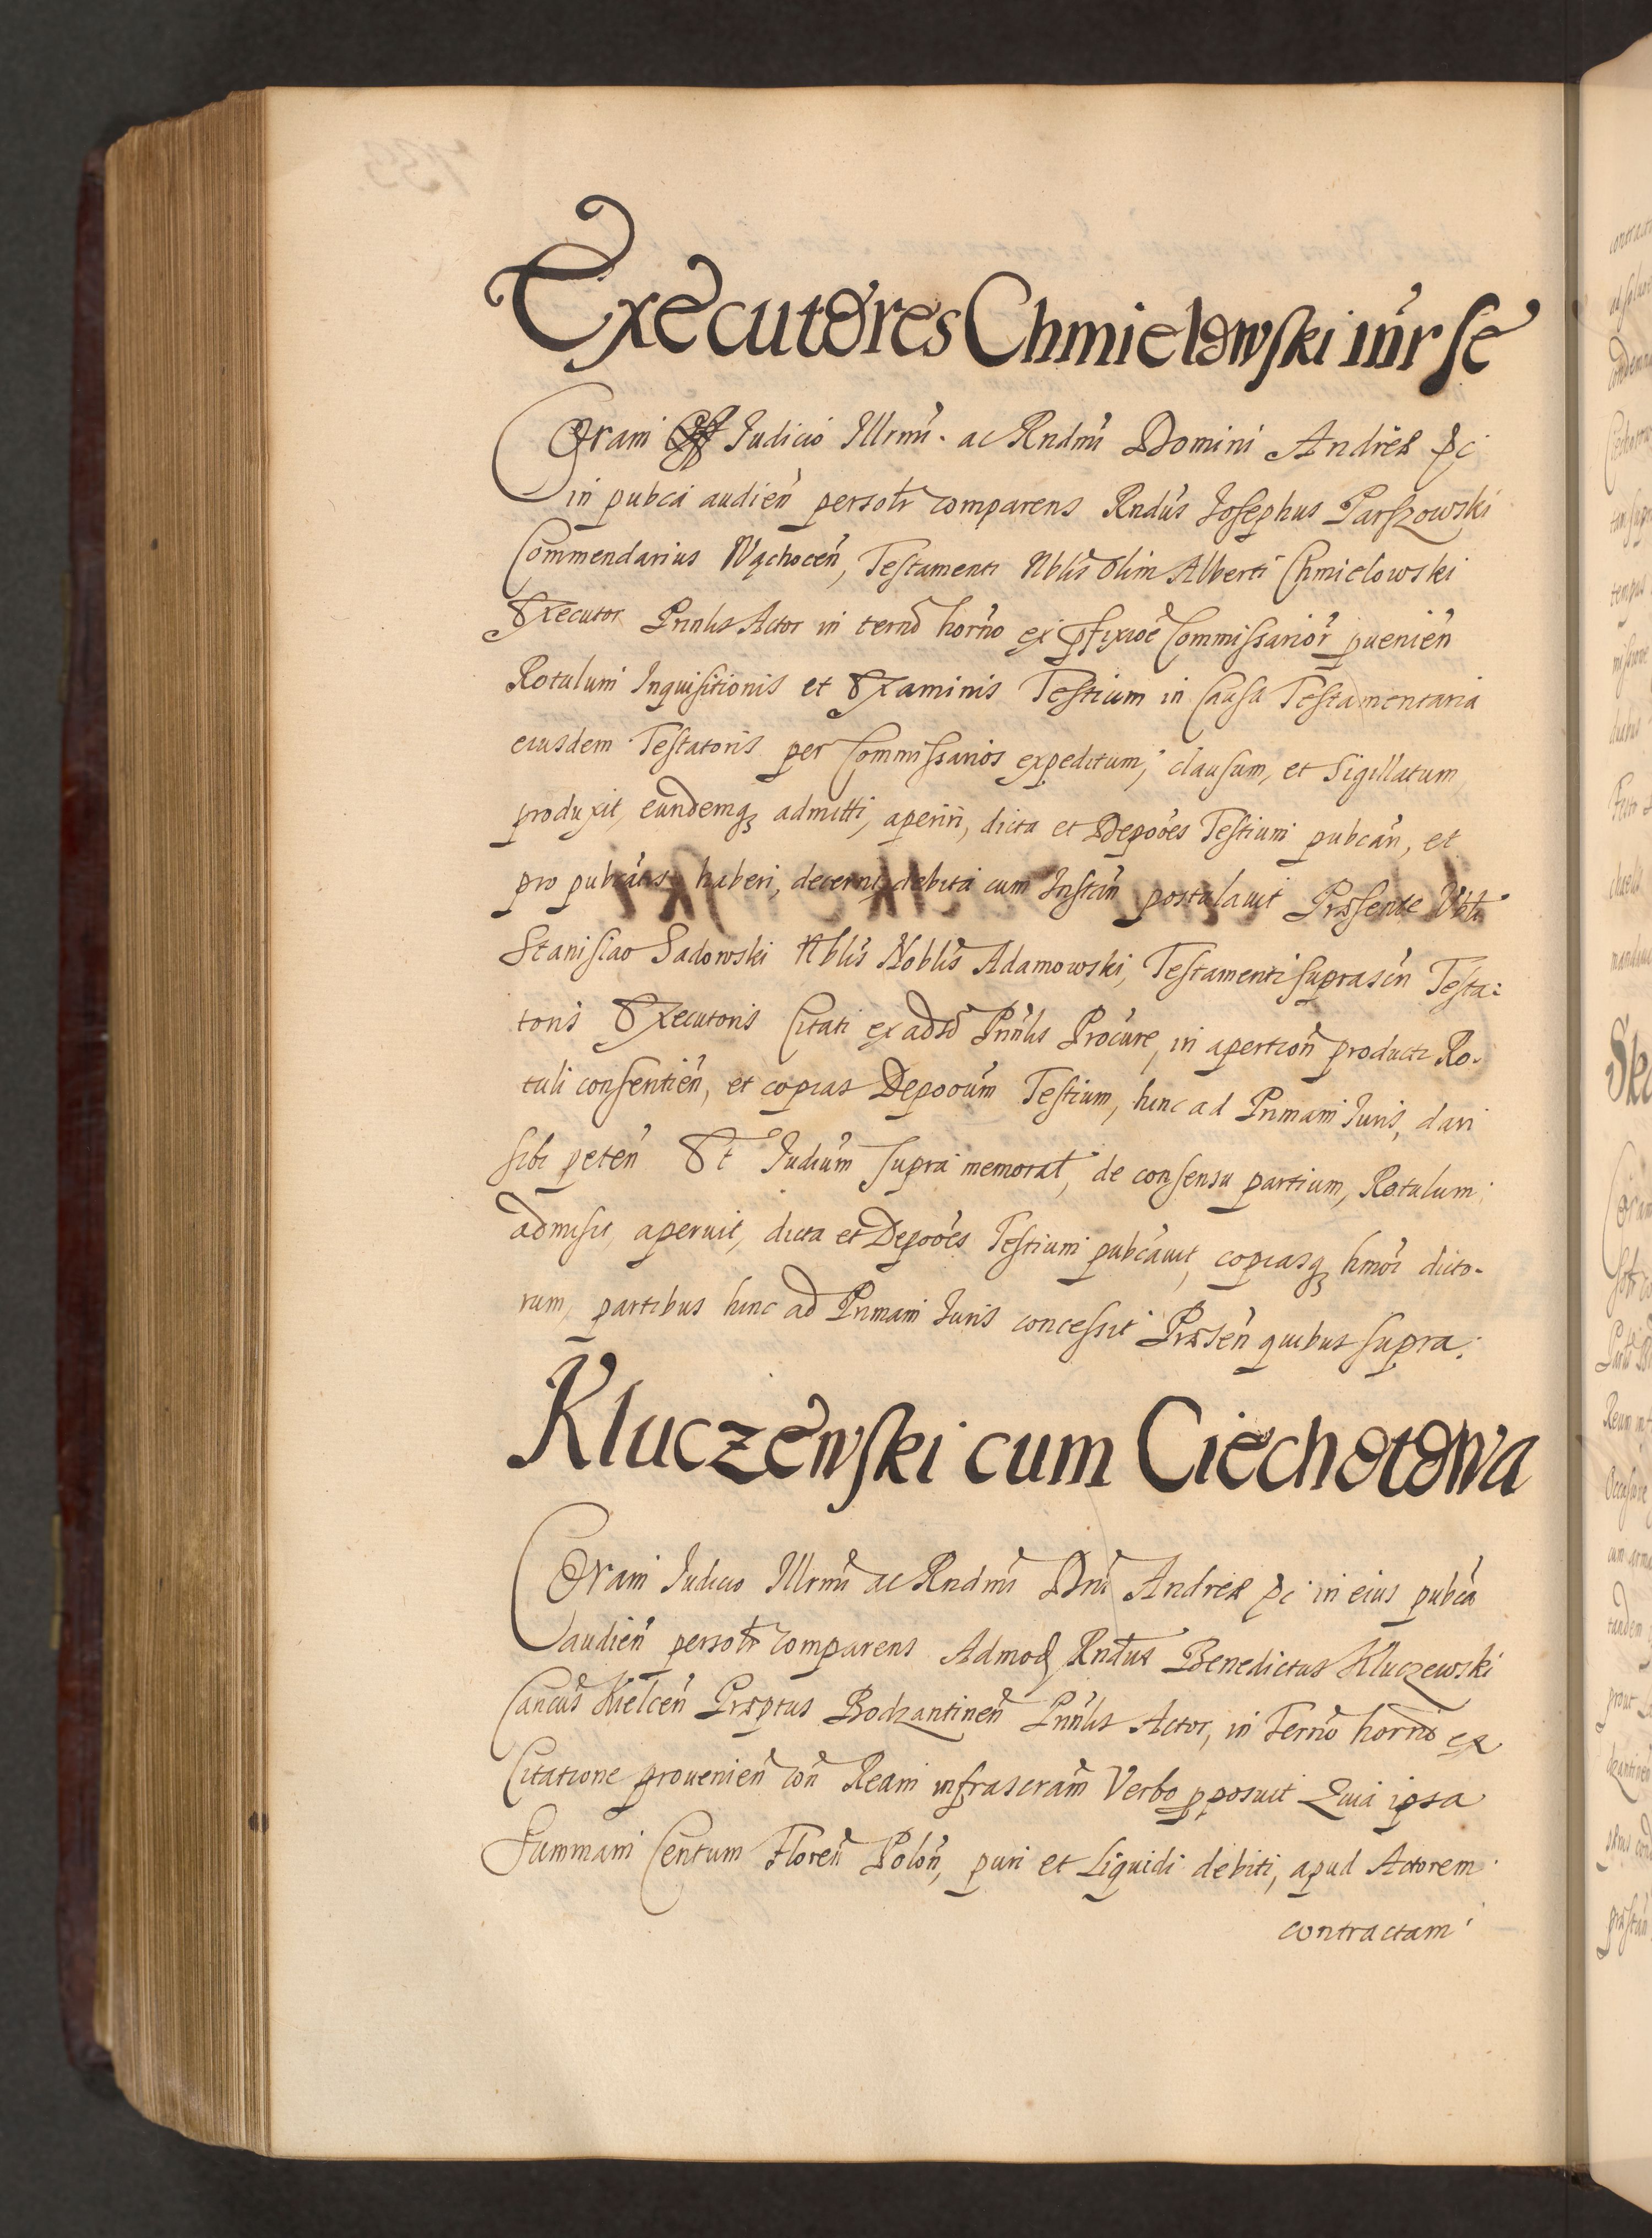 Executores Chmielowski inr̃ se
Coram Judicio Illrmi. ac Rndmi Domini Andreæ &c
in pubca audien̄ persolr comparens Rndus Josephus Parszowski
Commendarius Wąchocen̄, Testamenti Nblis olim Alberti Chmielowski
Executor Prinlis Actor in termo horno ex pfixioe Commissarior puenien̄
Rotulum Inquisitionis et Examinis Testium in Causa Testamentaria
eiusdem Testatoris per Commissarios expeditum, clausum, et Sigillatum,
produxit, eundemq; admitti, aperiri, dicta et Depoões Testium pubcari, et
pro pubcatis haberi, decerni debita cum Instan̄ postulauit Præsente Vbli
Stanislao Sadowski Nblis Noblis Adamowski, Testamenti suprascri Testa:
toris Executoris Citati ex adso Prinlis Procure, in apertion̄ producti Ro.
tuli consentien̄, et copias Depooum Testium, hinc ad Primam Iuris, dari
sibi peten̄ Et Judium supra memorat, de consensu partium, Rotulum
admisit, aperuit, dicta et Depoões Testium pubcauit, copiasq; hmoi dicto.
rum, partibus hinc ad Primam Iuris concessit Præsen̄ quibus supra.
Kluczewski cum Ciechotowa
Coram Judicio Illrmi ac Rndmi Dni Andreæ &c in eius pubca
audien̄ persolr comparens Admod Rndus Benedictus Kluczewski
Cancus Kielcen̄ Præptus Bodzantinen̄ Prinlis Actor, in Termo horno ex
Citatione prouenien̄ con̄ Ream infrascram Verbo pposuit Quia ipsa
Summam Centum Floren̄ Polon̄, puri et Liquidi debiti, apud Actorem
contractam